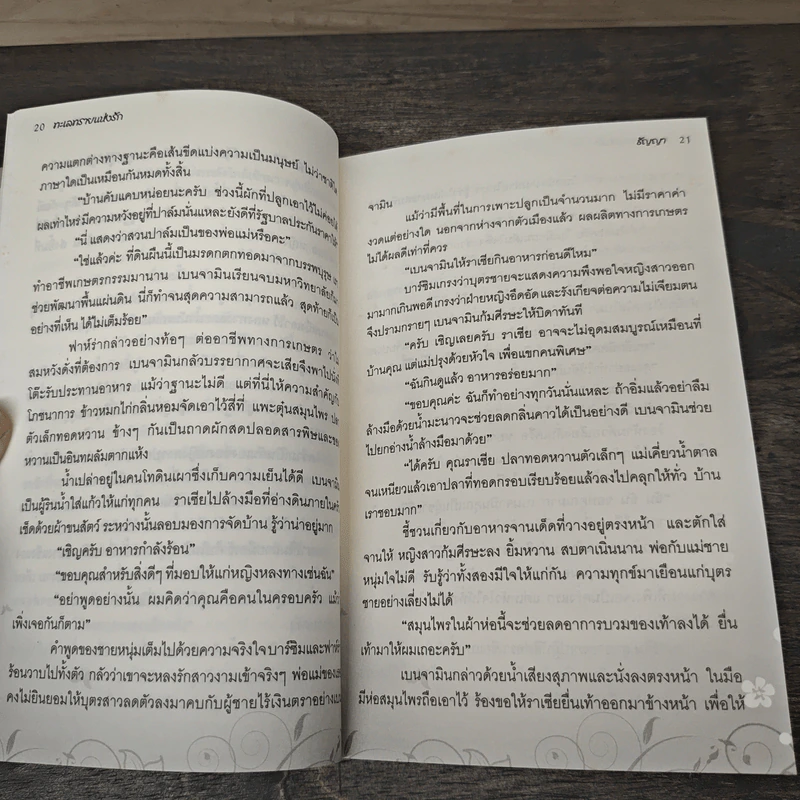 20 ทะเลทรายแห่งรัก
ความแตกต่างทางฐานะคือเส้นขีดแบ่งความเป็นมนุษย์ ไม่ว่าชาติใด
ภาษาใดเป็นเหมือนกันหมดทั้งสิ้น
“บ้านคับแคบหน่อยนะครับ ช่วงนี้ผักที่ปลูกเอาไว้ไม่ค่อยได้
ผลเท่าไหร่ มีความหวังอยู่ที่ปาล์มนั่นแหละยังดีที่รัฐบาลประกันราคาให้”
“นี่ แสดงว่าสวนปาล์มเป็นของพ่อแม่หรือคะ”
“ใช่แล้วค่ะ ที่ดินผืนนี้เป็นมรดกตกทอดมาจากบรรพบุรุษ
ทำอาชีพเกษตรกรรมมานาน เบนจามินเรียนจบมหาวิทยาลัยก็มา
ช่วยพัฒนาพื้นแผ่นดิน นี่ก็ทำจนสุดความสามารถแล้ว สุดท้ายก็เป็น
อย่างที่เห็น ได้ไม่เต็มร้อย”
ฟาห์ร่ากล่าวอย่างท้อๆ ต่ออาชีพทางการเกษตร ว่าไม่
สมหวังดั่งที่ต้องการ เบนจามินกลัวบรรยากาศจะเสียจึงพาไปนั่งที่
โต๊ะรับประทานอาหาร แม้ว่าฐานะไม่ดี แต่ที่นี่ให้ความสำคัญกับ
โภชนาการ ข้าวหมกไก่กลิ่นหอมจัดเอาไว้สี่ที่ แพะตุ๋นสมุนไพร ปลา
ตัวเล็กทอดหวาน ข้างๆ กันเป็นถาดผักสดปลอดสารพิษและของ
หวานเป็นอินทผลัมตากแห้ง
น้ำเปล่าอยู่ในคนโทดินเผาซึ่งเก็บความเย็นได้ดี เบนจามิน
เป็นผู้รินน้ำใส่แก้วให้แก่ทุกคน ราเซียไปล้างมือที่อ่างดินภายในครัว
เช็ดด้วยผ้าขนสัตว์ ระหว่างนั้นลอบมองการจัดบ้าน รู้ว่าน่าอยู่มาก
“เชิญครับ อาหารกำลังร้อน”
“ขอบคุณสำหรับสิ่งดีๆ ที่มอบให้แก่หญิงหลงทางเช่นฉัน”
“อย่าพูดอย่างนั้น ผมคิดว่าคุณคือคนในครอบครัว แม้ว่า
เพิ่งเจอกันก็ตาม”
คำพูดของชายหนุ่มเต็มไปด้วยความจริงใจ บาร์ซิมและฟาห์ร่า
ร้อนวาบไปทั้งตัว กลัวว่าเขาจะหลงรักสาวงามเข้าจริงๆ พ่อแม่ของเธอ
คงไม่ยินยอมให้บุตรสาวลดตัวลงมาคบกับผู้ชายไร้เงินตราอย่างเบน
ธัญญา 21
จามิน
แม้ว่ามีพื้นที่ในการเพาะปลูกเป็นจำนวนมาก ไม่มีราคาค่า
งวดแต่อย่างใด นอกจากห่างจากตัวเมืองแล้ว ผลผลิตทางการเกษตร
ไม่ได้ผลดีเท่าที่ควร
“เบนจามินให้ราเซียกินอาหารก่อนดีไหม”
บาร์ซิมเกรงว่าบุตรชายจะแสดงความพึงพอใจหญิงสาวออก
มามากเกินพอดี เกรงว่าฝ่ายหญิงอึดอัด และรังเกียจต่อความไม่เจียมตน
จึงปรามกรายๆ เบนจามินก้มศีรษะให้บิดาทันที
“ครับ เชิญเลยครับ ราเซีย อาจจะไม่อุดมสมบูรณ์เหมือนที่
บ้านคุณ แต่แม่ปรุงด้วยหัวใจ เพื่อแขกคนพิเศษ”
“ฉันกินดูแล้ว อาหารอร่อยมาก”
“ขอบคุณค่ะ ฉันก็ทำอย่างทุกวันนั่นแหละ ถ้าอิ่มแล้วอย่าลืม
ล้างมือด้วยน้ำมะนาวจะช่วยลดกลิ่นคาวได้เป็นอย่างดี เบนจามินช่วย
ไปยกอ่างน้ำล้างมือมาด้วย”
“ได้ครับ คุณราเซีย ปลาทอดหวานตัวเล็กๆ แม่เคี่ยวน้ำตาล
จนเหนียวแล้วเอาปลาที่ทอดกรอบเรียบร้อยแล้วลงไปคลุกให้ทั่ว บ้าน
เราชอบมาก”
ชี้ชวนเกี่ยวกับอาหารจานเด็ดที่วางอยู่ตรงหน้า และตักใส่
จานให้ หญิงสาวก้มศีรษะลง ยิ้มหวาน สบตาเนิ่นนาน พ่อกับแม่ชาย
หนุ่มใจไม่ดี รับรู้ว่าทั้งสองมีใจให้แก่กัน ความทุกข์มาเยือนแก่บุตร
ชายอย่างเลี่ยงไม่ได้
“สมุนไพรในผ้าห่อนี้จะช่วยลดอาการบวมของเท้าลงได้ ยื่น
เท้ามาให้ผมเถอะครับ”
เบนจามินกล่าวด้วยน้ำเสียงสุภาพและนั่งลงตรงหน้า ในมือ
มีห่อสมุนไพรถือเอาไว้ ร้องขอให้ราเซียยื่นเท้าออกมาข้างหน้า เพื่อให้